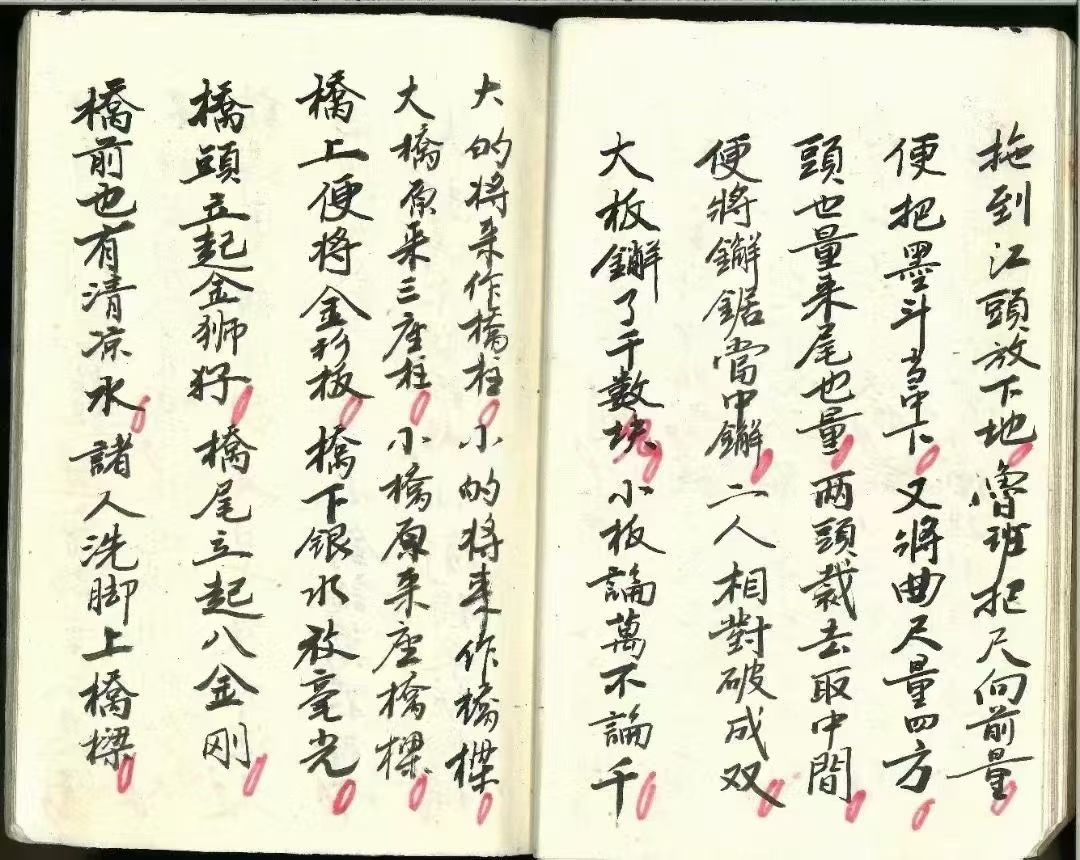 拖到江頭放下地魯班把尺向前量
便把墨斗当中下又將曲尺量四方
頭也量来尾也量两頭裁去取中間
便將鎅鋸當中鎅二人相對破成双
大板鎅了千數块小板論萬不論千
大的将来作橋柱小的将来作橋樑
大橋原来三座柱小橋原来座橋樑
橋上便将金板橋下銀水放毫光
橋頭立起金狮仔橋尾立起八金刚
橋前也有清凉水諸人洗脚上橋樑